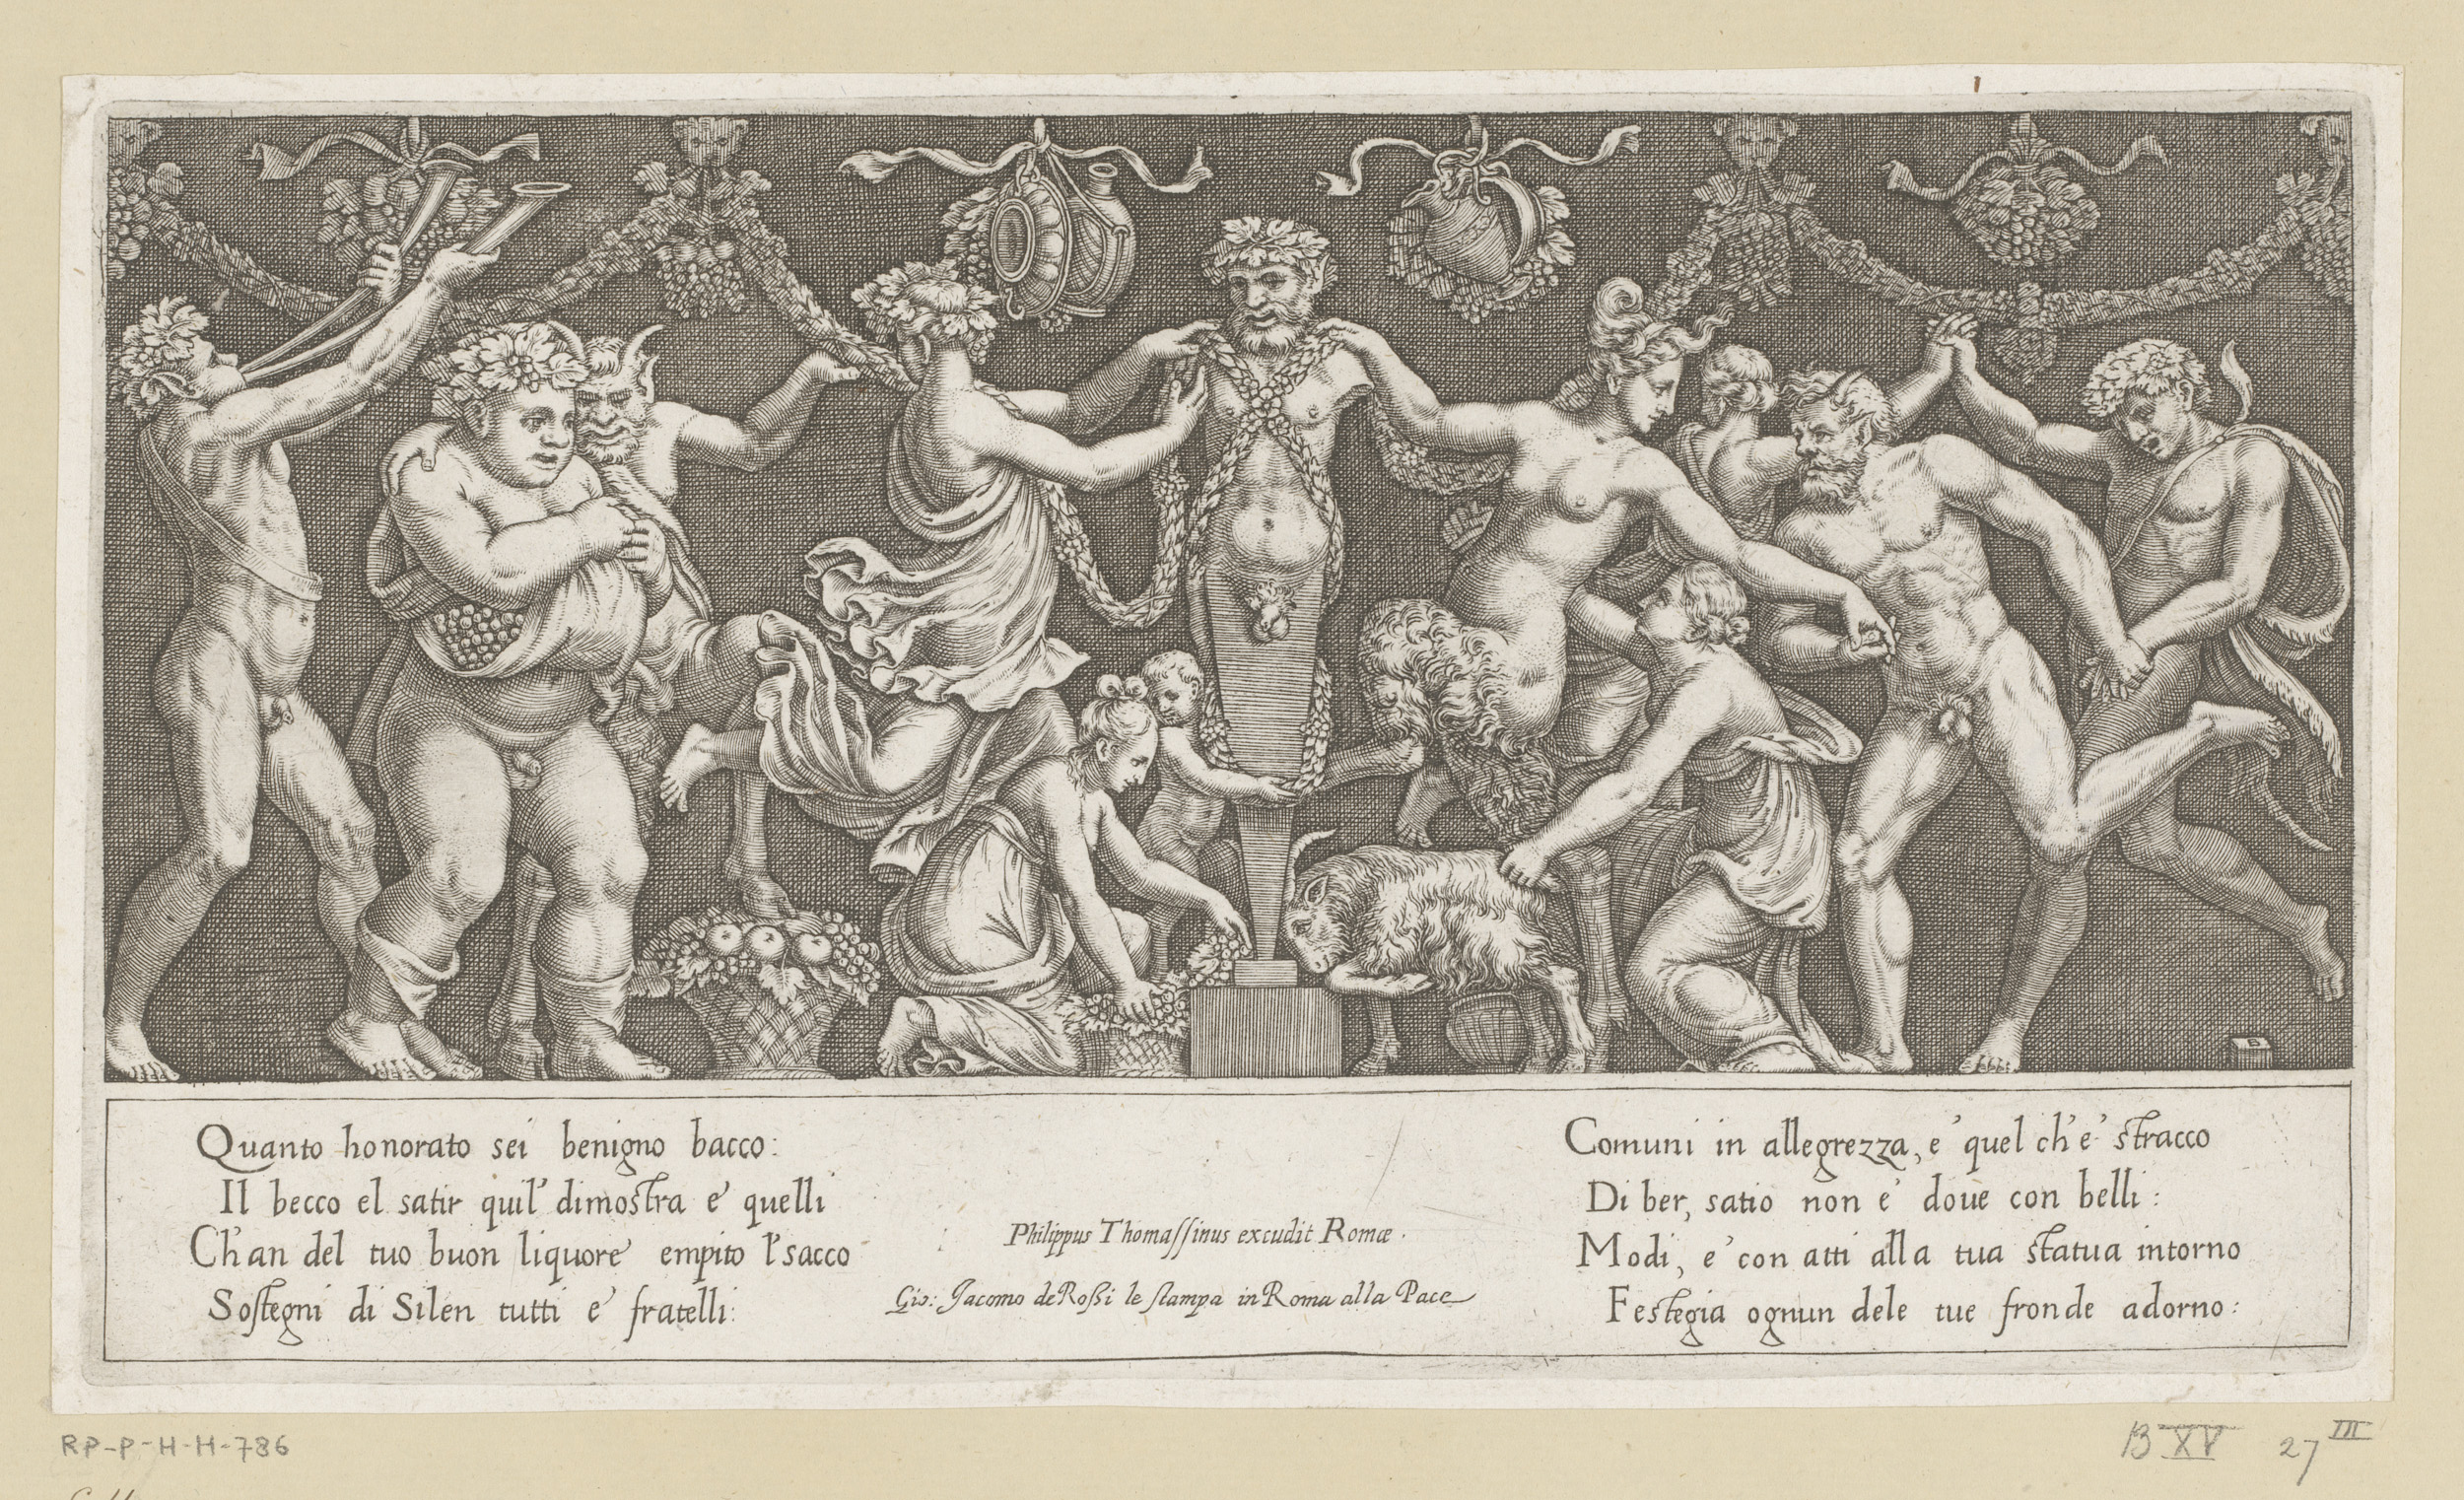 B
Quanto honorato sei benigno bacco:
Il becco el satir quil' dimostra e' quelli
Ch'an del tuo buon liquore' empito l'sacco
Sostegni di Silen tutti e' fratelli:
Philippus Thomassinus excudit Romæ.
Gio: Jacomo de Rossi le stampa in Roma alla Pace
Comuni in allegrezza, e' quel ch'e' stracco
Di ber, satio non e' doue con belli:
Modi, e' con atti alla tua statua intorno
Festegia ognun dele tue fronde adorno:
RP-P-H-H-786
B XV 27 III